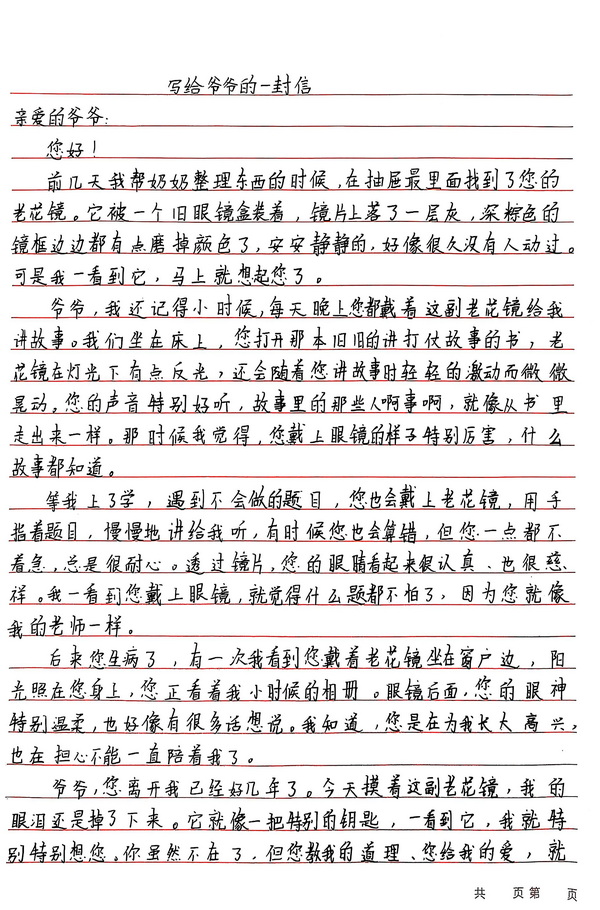 写给爷爷的一封信
亲爱的爷爷:
您好!
前几天我帮奶奶整理东西的时候,在抽屉最里面找到了您的
老花镜。它被一个旧眼镜盒装着,镜片上落了一层灰,深棕色的
镜框边边都有点磨掉颜色了,安安静静的,好像很久没有人动过。
可是我一看到它,马上就想起您了。
爷爷,我还记得小时候,每天晚上您都戴着这副老花镜给我
讲故事。我们坐在床上,您打开那本旧旧的讲打仗故事的书,老
花镜在灯光下有点反光,还会随着您讲故事时轻轻的激动而微微
晃动。您的声音特别好听,故事里的那些人啊事啊,就像从书里
走出来一样。那时候我觉得,您戴上眼镜的样子特别厉害,什么
故事都知道。
等我上了学,遇到不会做的题目,您也会戴上老花镜,用手
指着题目,慢慢地讲给我听,有时候您也会算错,但您一点都不
着急,总是很耐心。透过镜片,您的眼睛看起来很认真、也很慈
祥。我一看到您戴上眼镜,就觉得什么题都不怕了,因为您就像
我的老师一样。
后来您生病了,有一次我看到您戴着老花镜坐在窗户边,阳
光照在您身上,您正看着我小时候的相册。眼镜后面,您的眼神
特别温柔,也好像有很多话想说。我知道,您是在为我长大高兴,
也在担心不能一直陪着我了。
爷爷,您离开我已经好几年了。今天摸着这副老花镜,我的
眼泪还是掉了下来。它就像一把特别的钥匙,一看到它,我就特
别特别想您。你虽然不在了,但您教我的道理、您给我的爱,就
共 页第 页